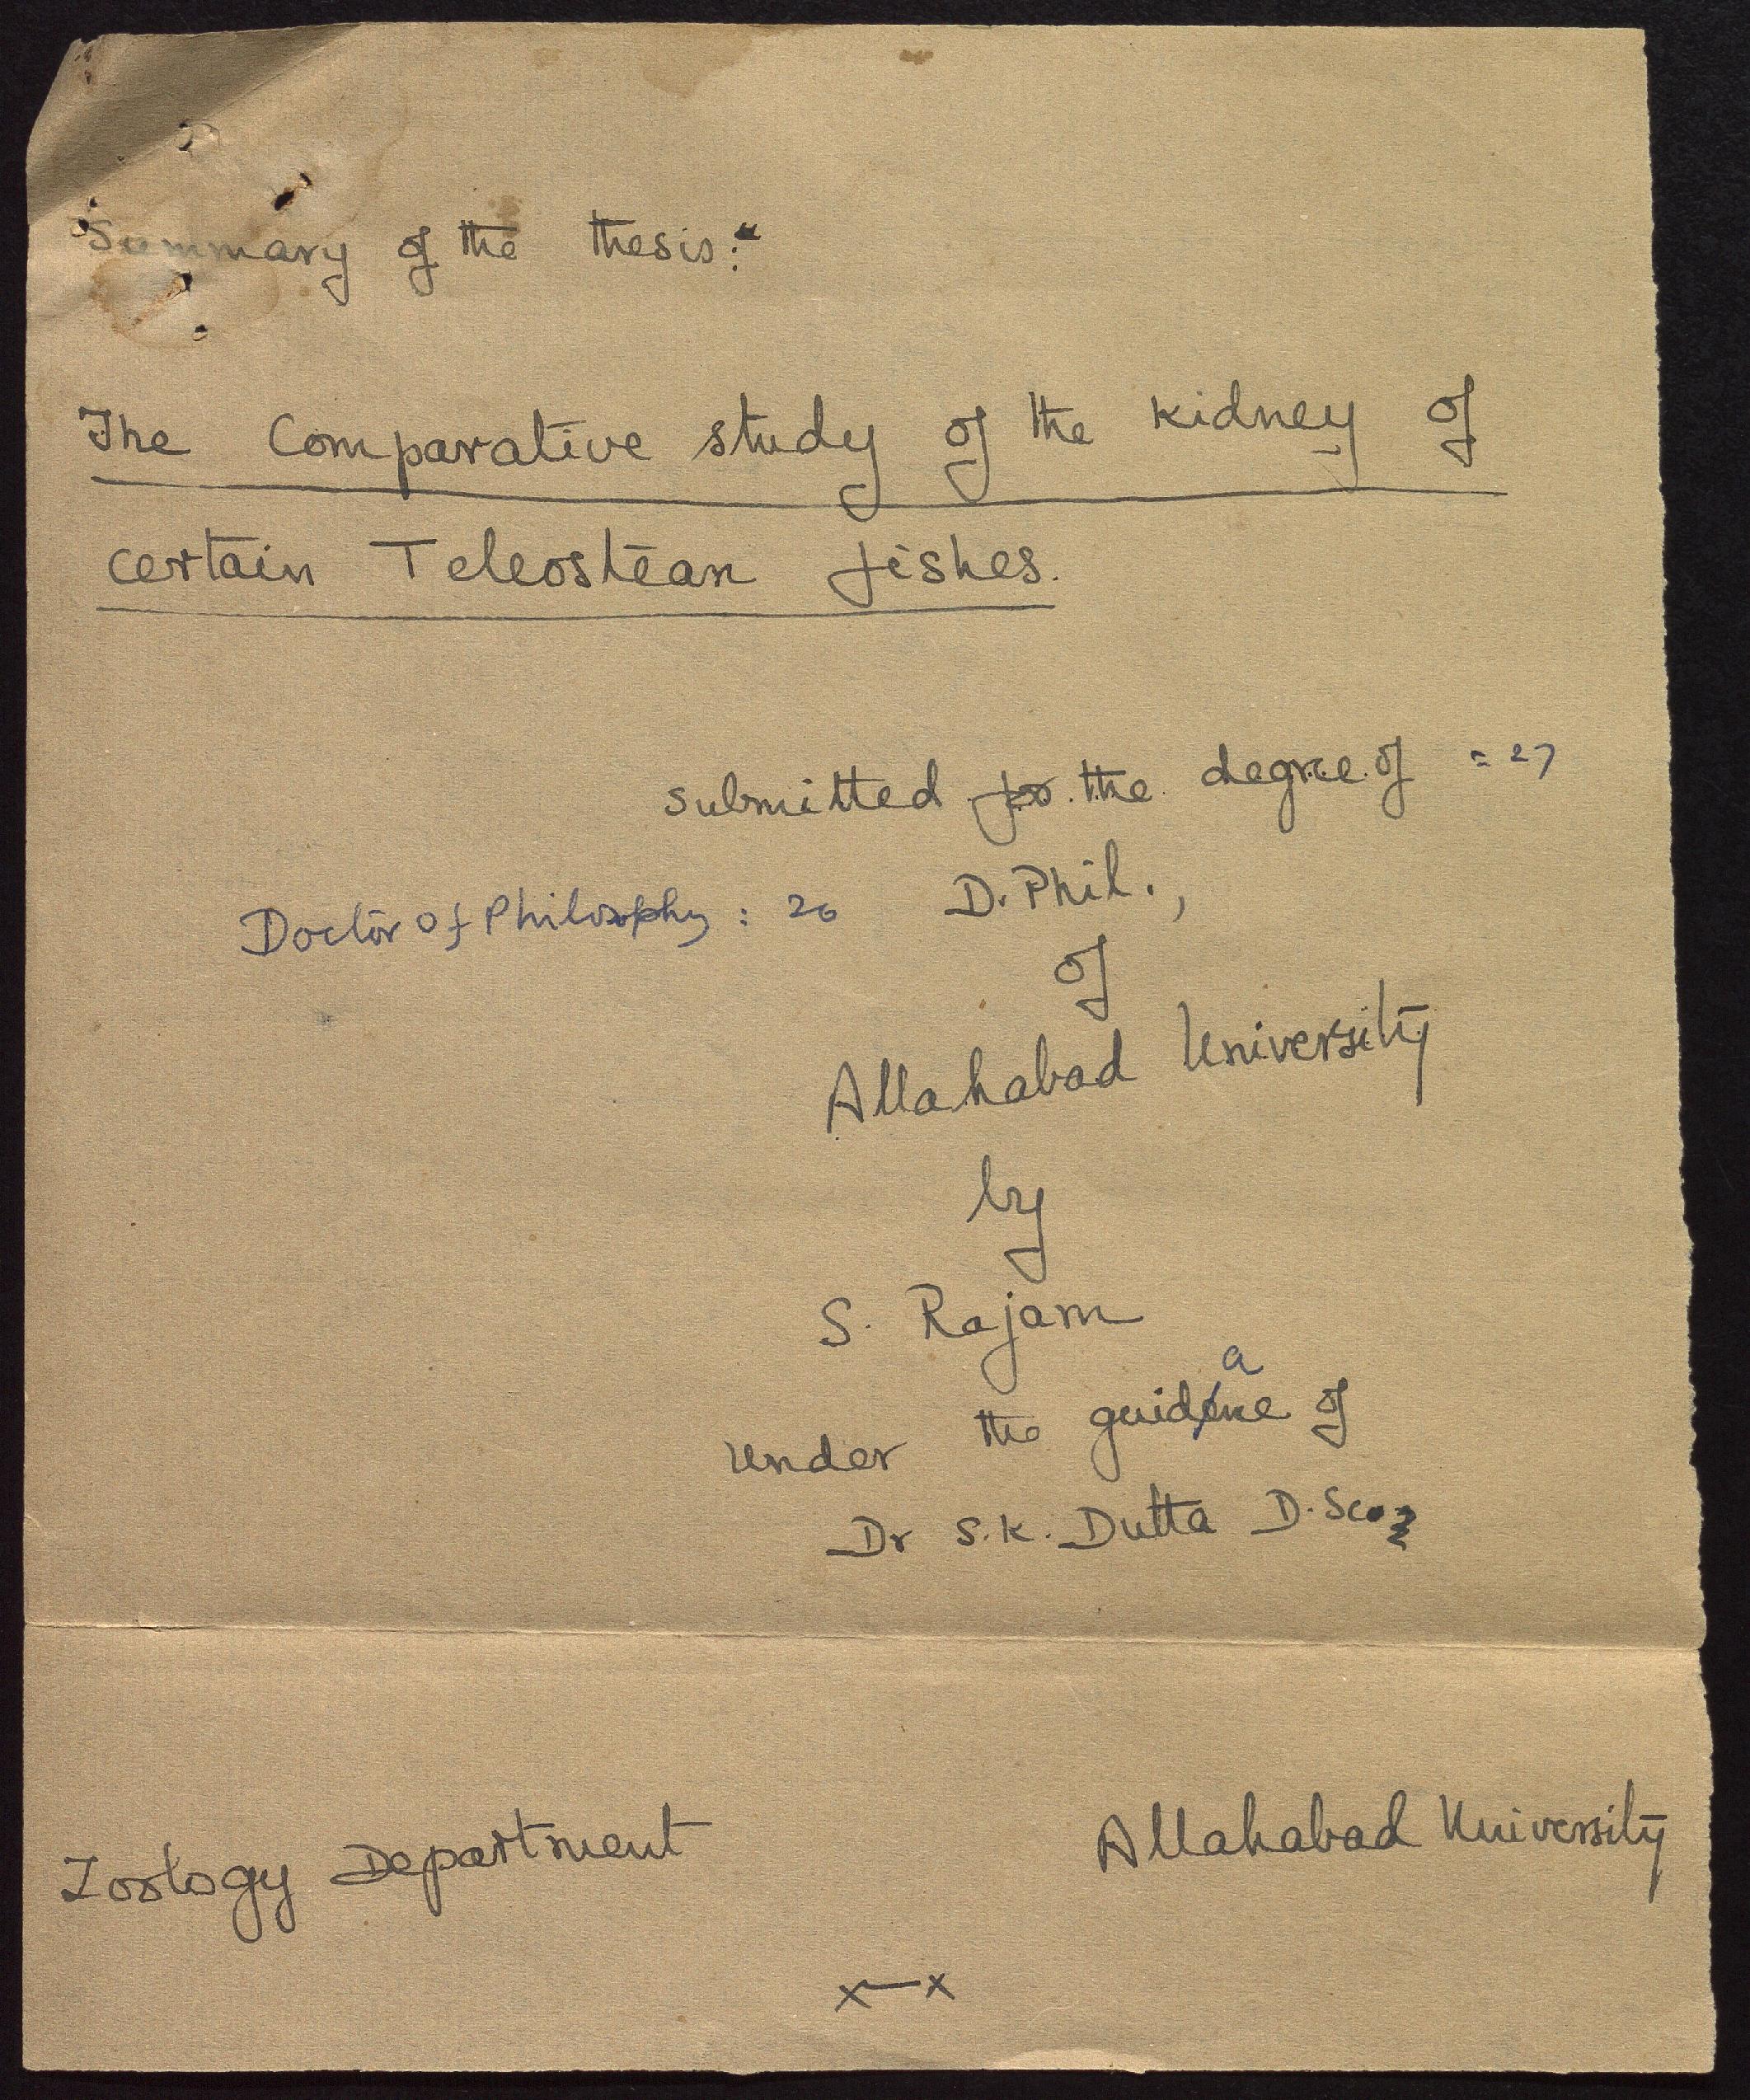 Summary of the thesis:-
The Comparative study of the kidney of
certain Teleostean fishes.
submitted for the degree of = 27
Doctor of Philosophy : 20 D. Phil.,
of
Allahabad University
by
S. Rajam
under the guidance of
Dr S.K. Dutta D.Sc.,
Zoology Department Allahabad University
x—x